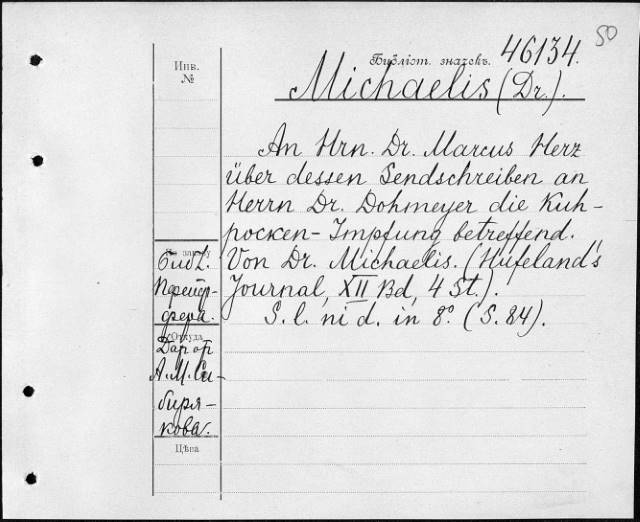 50
Инв.
№
Библіот. значекъ. 46134.
Michaelis (Dr.).
An Hrn. Dr. Marcus Herz
über dessen Sendschreiben an
Herrn Dr. Dohmeyer die Kuh-
pocken-Impfung betreffend.
Von Dr. Michaelis. (Hufeland's
Journal, XII Bd, 4 St.).
S. l. ni d. in 8º. (S. 84).
Библ.
Пфейф-
фера.
Откуда
Дар от
А. М. Си-
биря-
кова.
Цѣна